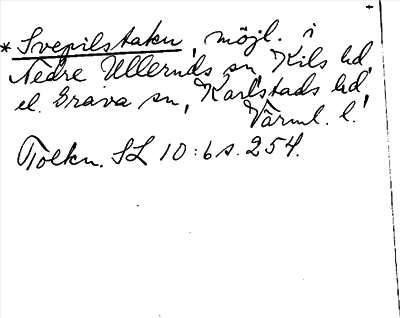 * Svepilstaku, möjl. i
Nedre Ullernds sn, Kils hd,
el. Grava sn, Karlstads hd,
Värml. l.
Tolkn. SL 10:6 s. 254.